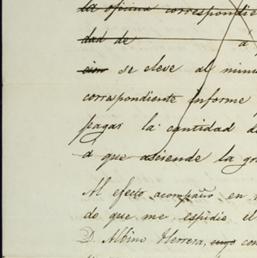 la oficina correspondie
dad de a
cion se eleve al minis
correspondiente informe
pagar la cantidad de
a que asciende la gra
Al efecto acompaño en
de que me espidio el
D. Albino Herrera, cuyo con